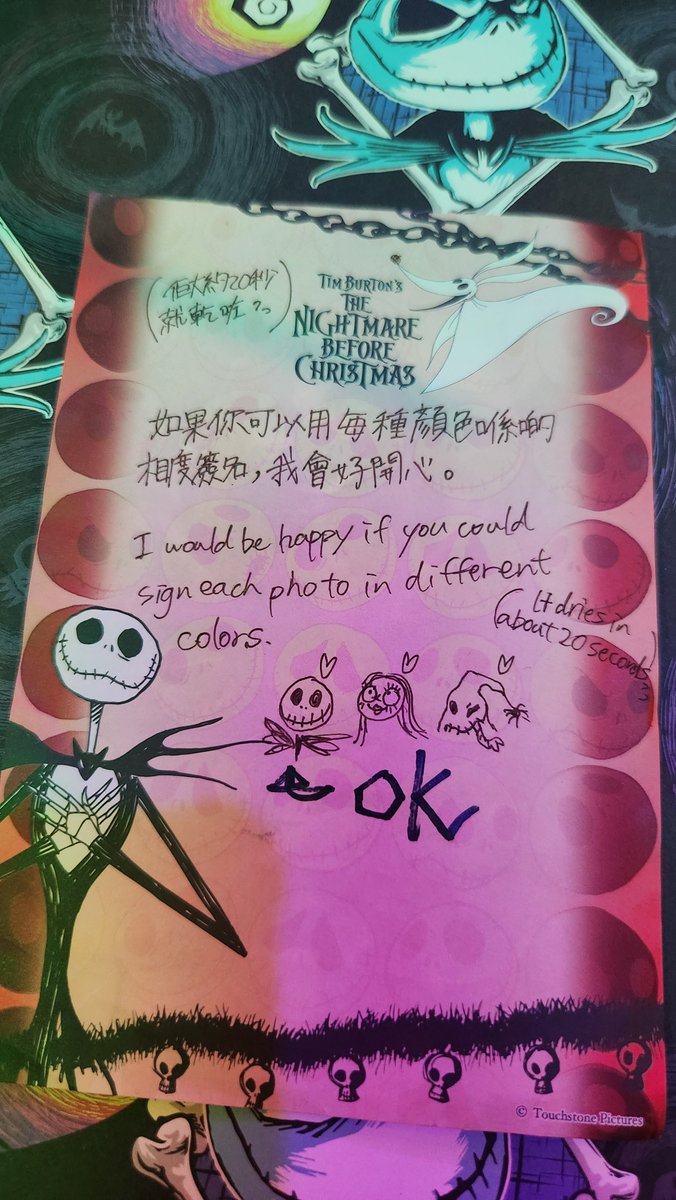 (佢大約20秒
就乾咗 )
TIM BURTON'S
THE
NIGHTMARE
BEFORE
CHRISTMAS
如果你可以用每種顏色喺啲
相度簽名，我會好開心。
I would be happy if you could
sign each photo in different
colors.
(It dries in
about 20 seconds)
OK
© Touchstone Pictures